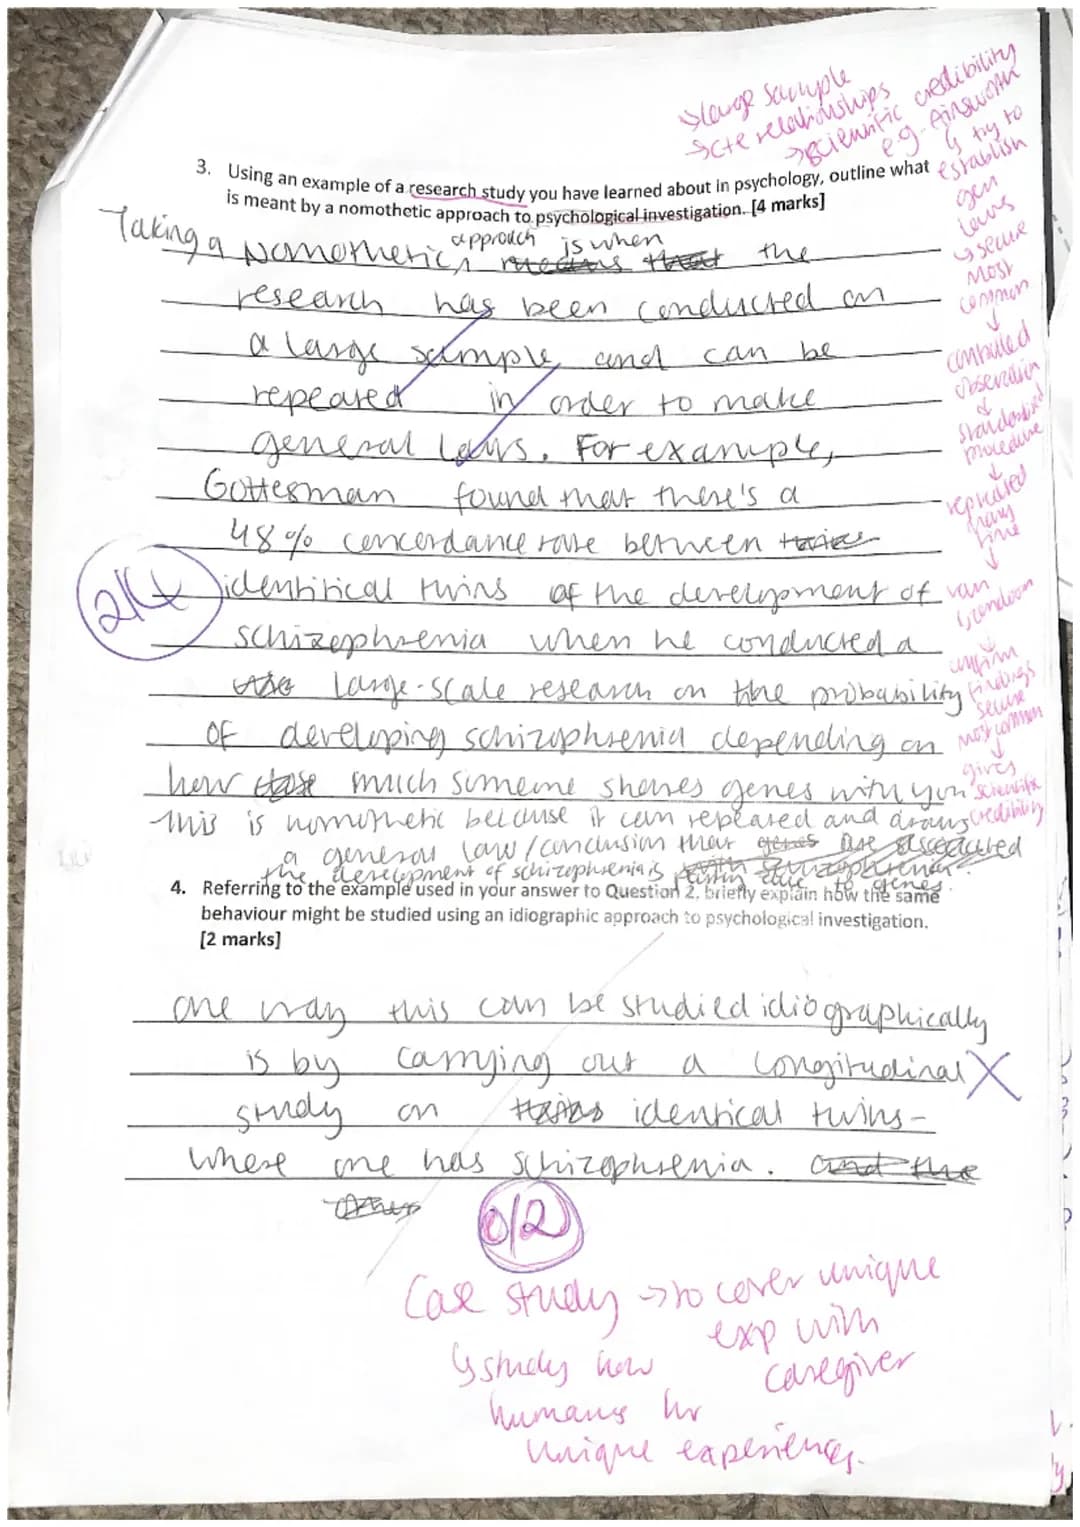 →large sample
→c+e relationships
→scientific credibility
e.g. Ainsworth
↳ try to
establish
gen
laws
↳secure
most
common
↓
controlled
observation
↓
standardised
procedure
↓
replicated
many
time
↓
van
Ijzendoorn
↓
confirm
findings
secure
most common
↓
gives
scientific
credibility
3. Using an example of a research study you have learned about in psychology, outline what
is meant by a nomothetic approach to psychological investigation. [4 marks]
Taking a Nomothetic approach is when means that the
research has been conducted on
a large sample, and can be
repeated in order to make
general laws. For example,
Gottesman found that there's a
48% concordance rate between twins
identitical twins of the development of
schizophrenia when he conducted a
large-scale research on the probability
of developing schizophrenia depending on
how much someone shares genes with you.
This is nomothetic because it can repeated and draws
a general law/conclusion that genes are associated
with schizophrenia.
the development of schizophrenia is due to genes.
2/4
4. Referring to the example used in your answer to Question 2, briefly explain how the same
behaviour might be studied using an idiographic approach to psychological investigation.
[2 marks]
one way this can be studied idiographically
is by carrying out a longitudinal X
study on twins identical twins-
where one has schizophrenia. and the
other
0/2
Case study →to cover unique
exp with
caregiver
↳study how
humans hv
unique experiences.